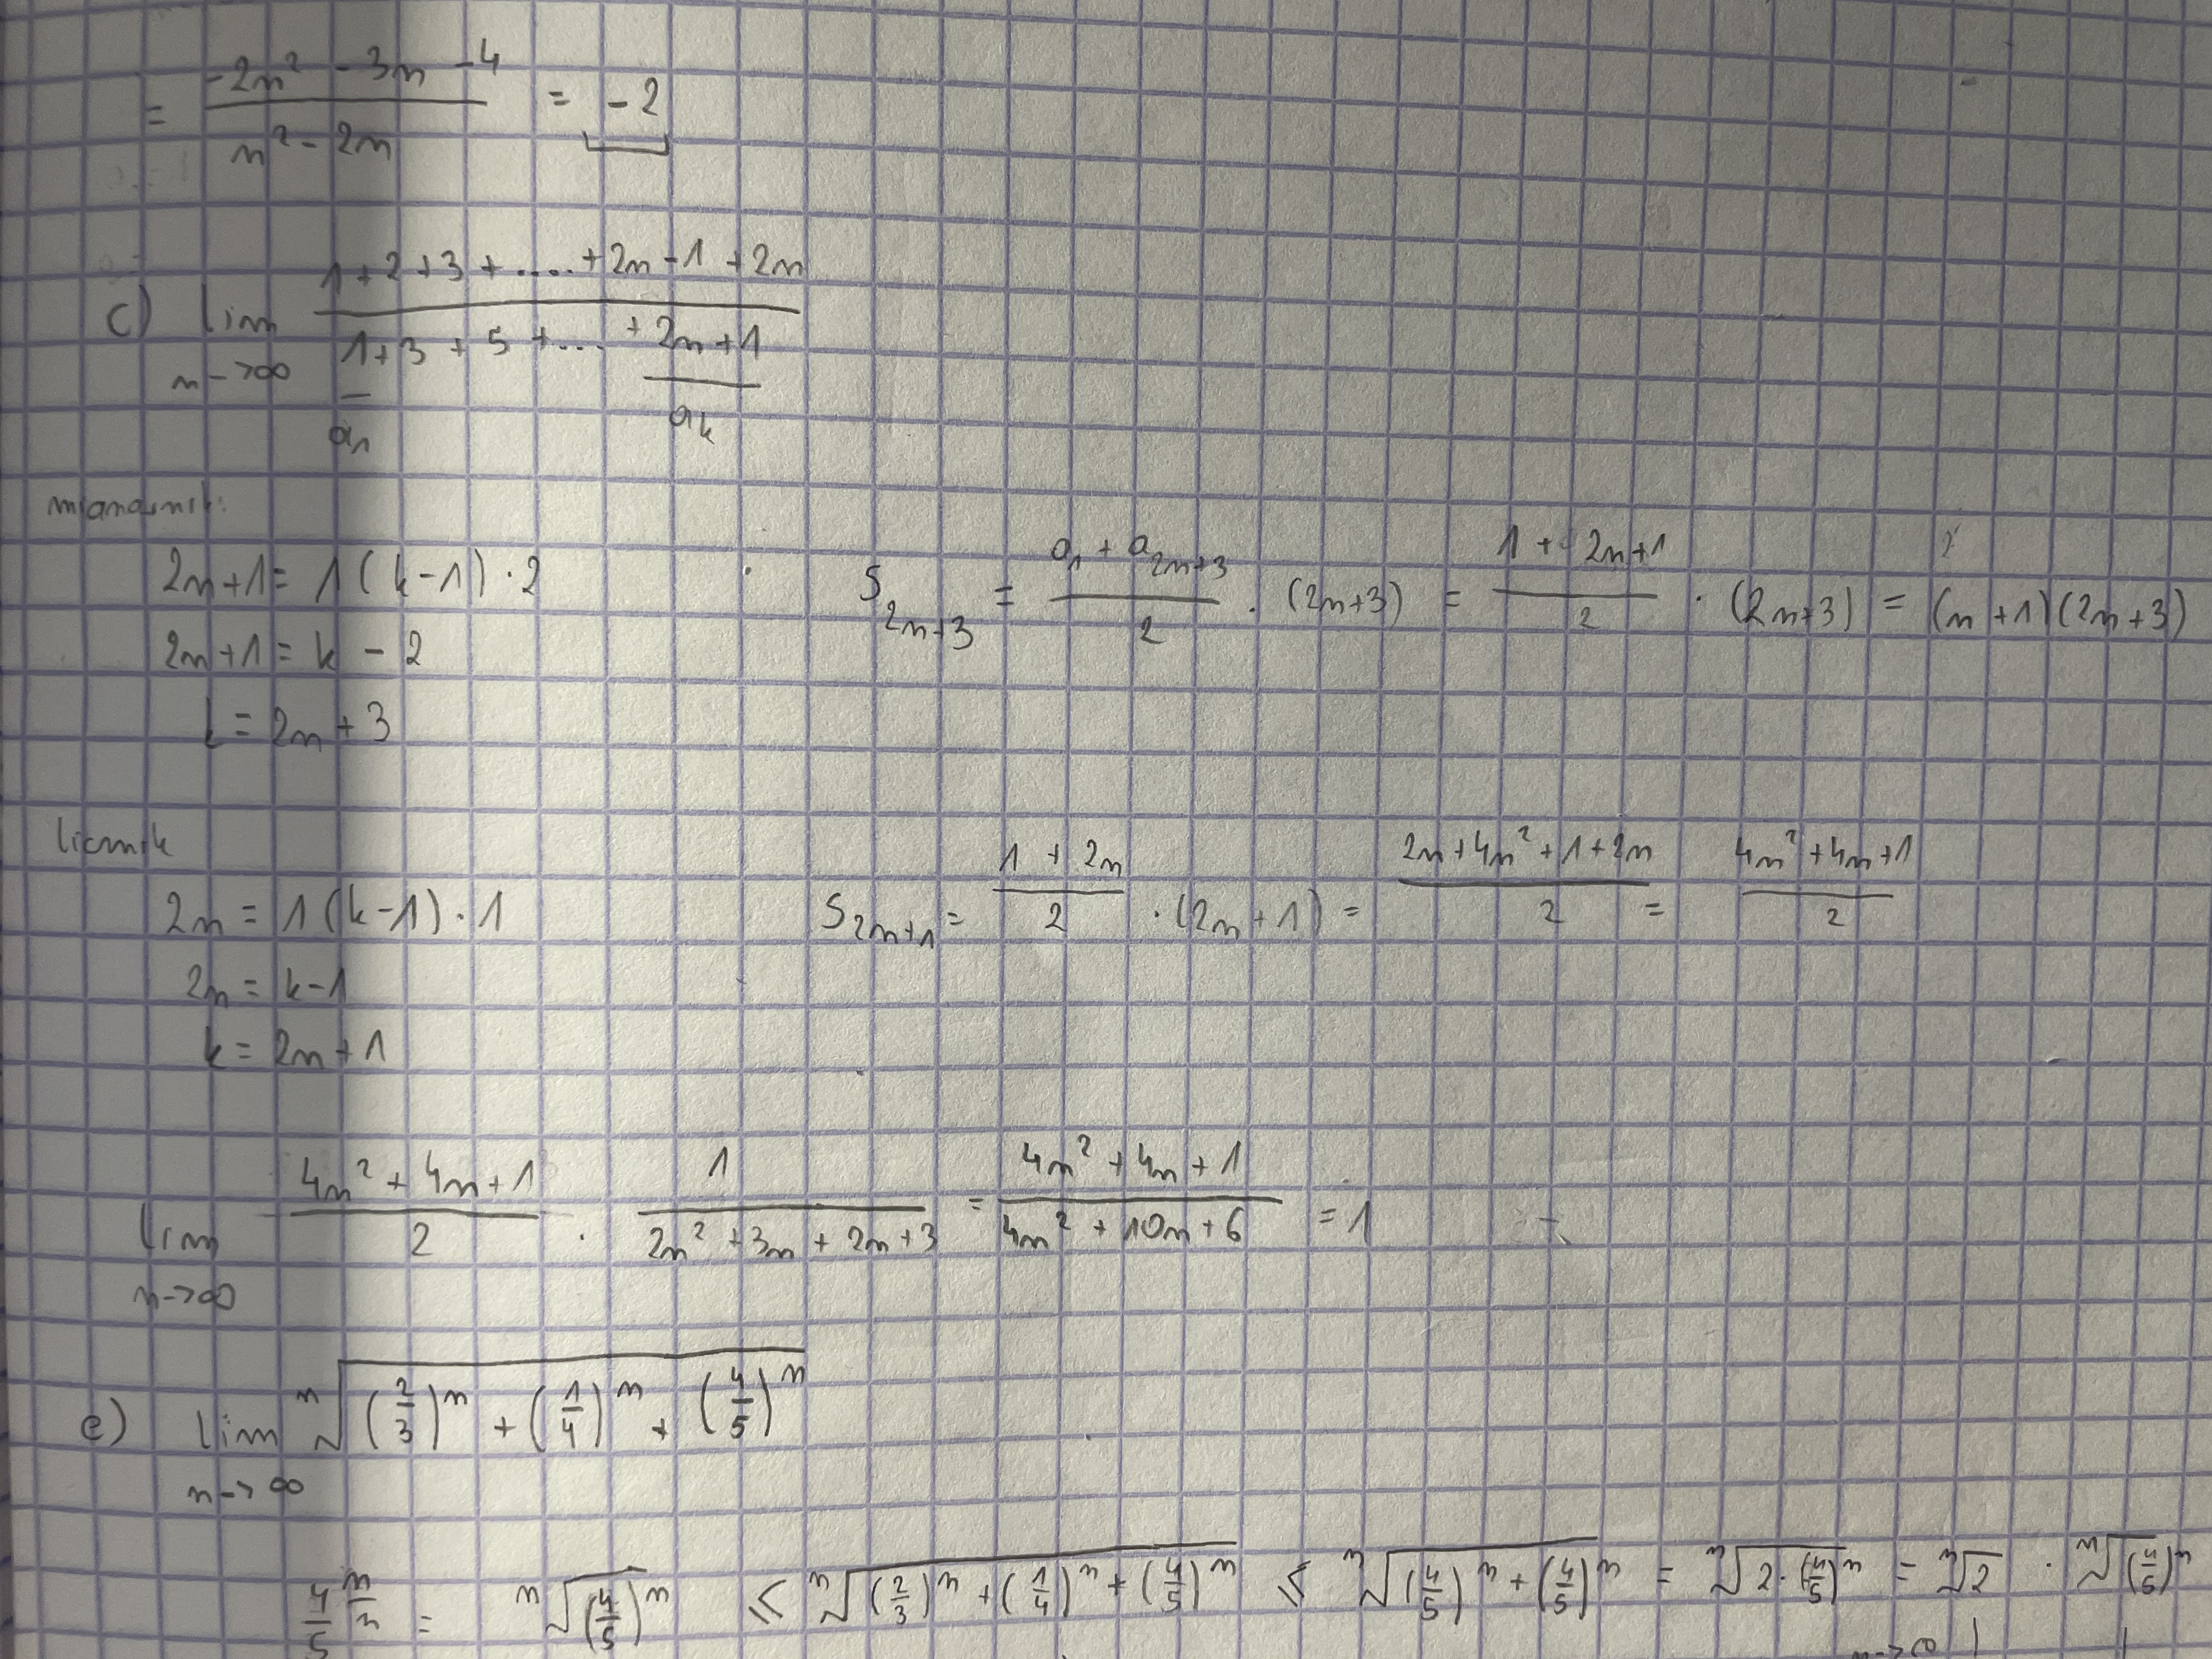 = (-2n² - 3n - 4)/(n² - 2n) = -2
c) lim n->∞ (1+2+3+....+2n-1+2n)/(1+3+5+...+2n+1)
a₁ aₖ
mianownik:
2n+1 = 1(k-1)·2
S₂ₙ₊₃ = (a₁ + a₂ₙ₊₃)/2 · (2n+3) = (1+2n+1)/2 · (2n+3) = (n+1)(2n+3)
2n+1 = k - 2
k = 2n+3
licznik
2n = 1(k-1)·1
S₂ₙ₊₁ = (1+2n)/2 · (2n+1) = (2n+4n²+1+2n)/2 = (4n²+4n+1)/2
2n = k-1
k = 2n+1
lim n->∞ (4n²+4n+1)/2 · 1/(2n²+3n+2n+3) = (4n²+4n+1)/(4n²+10n+6) = 1
e) lim n->∞ ⁿ√((2/3)ⁿ + (1/4)ⁿ + (4/5)ⁿ)
4/5^(n/n) = ⁿ√((4/5)ⁿ) ≤ ⁿ√((2/3)ⁿ + (1/4)ⁿ + (4/5)ⁿ) ≤ ⁿ√((4/5)ⁿ + (4/5)ⁿ) = ⁿ√(2·(4/5)ⁿ) = ⁿ√2 · ⁿ√((4/5)ⁿ)
n->∞